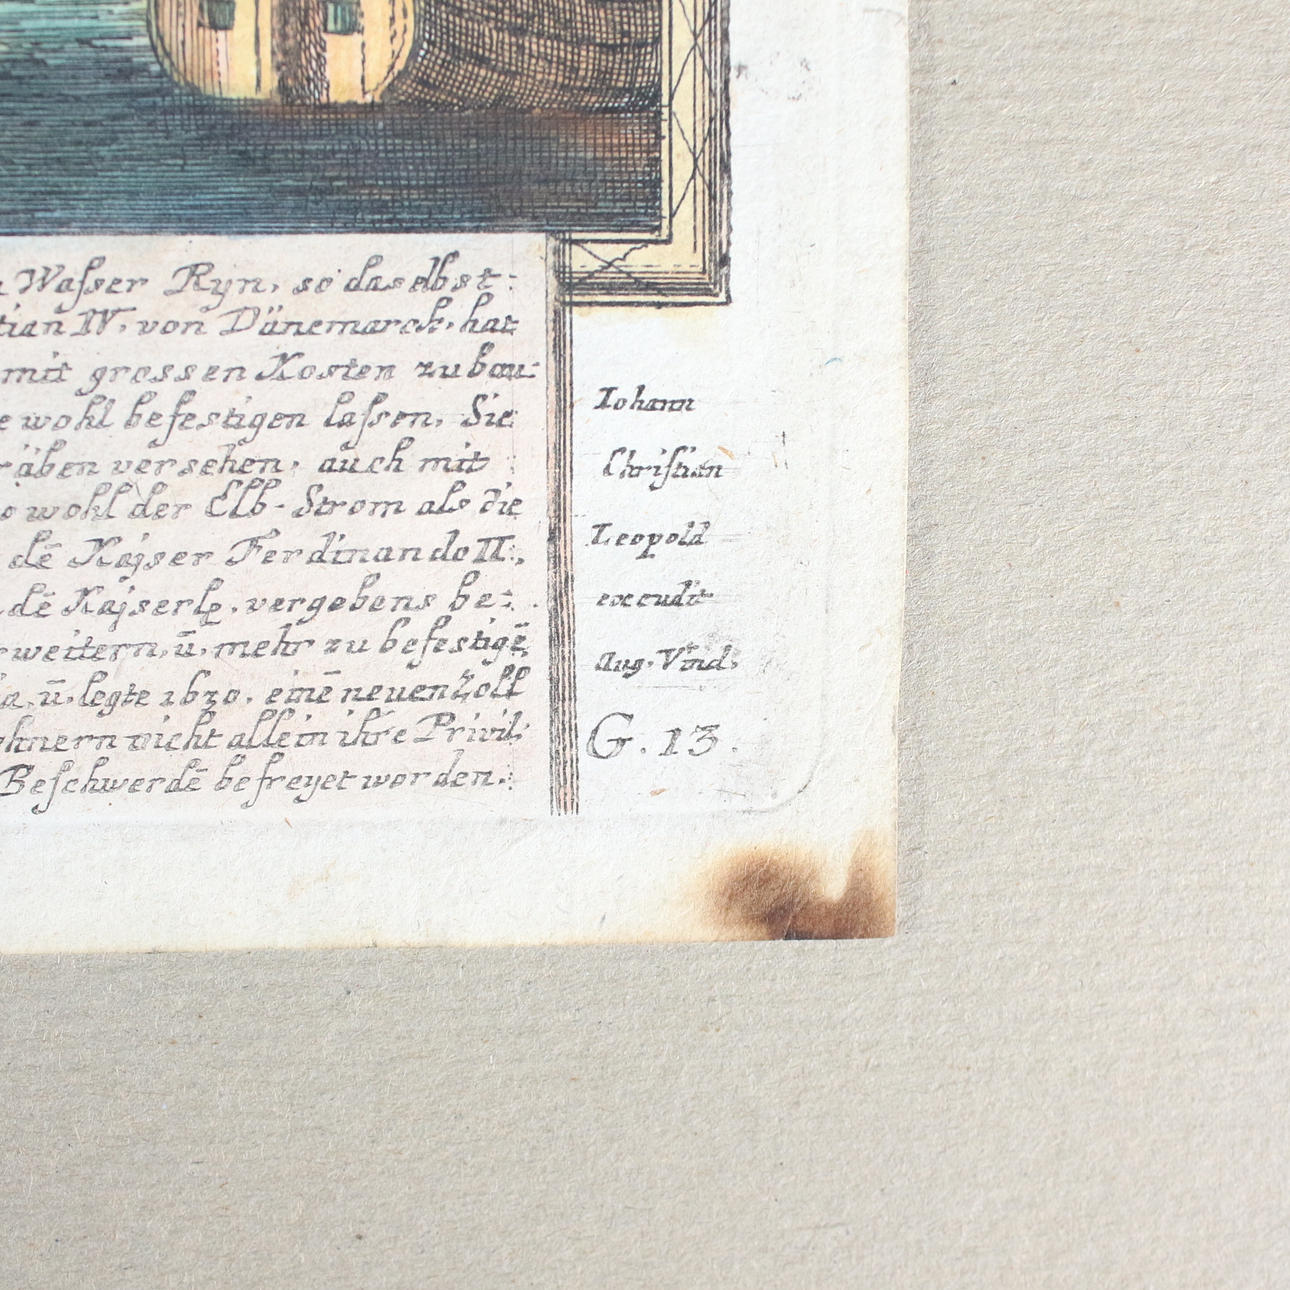 Waſser Ryn, so daselbst:
tian IV. von Dänemarck, hat
mit grossen Kosten zu bau:
e wohl befestigen laſsen, Sie
räben versehen, auch mit
o wohl der Elb-Strom als die
dē Kajser Ferdinando II.,
dē Kajserlȩ. vergebens be:
rweitern, ū. mehr zu befestigē
ia, ū. legte 1630. einē neuen Zoll
ohnern nicht allein ihre Privil:
Beſchwerdē befreyet worden.
Iohann
Chriſtian
Leopold
excudit
Aug. Vind.
G. 13.